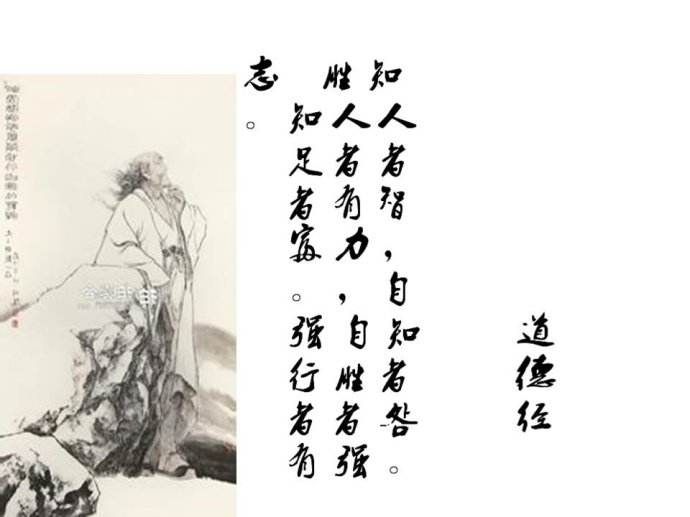 道德经
知人者智，自知者咎。
胜人者有力，自胜者强
知足者富。强行者有
志。